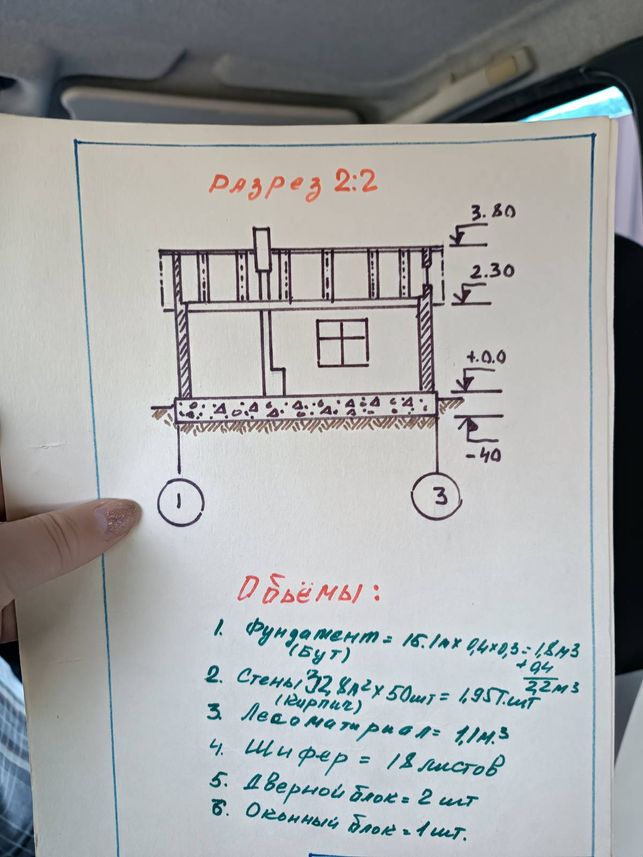 Разрез 2:2
3.80
2.30
+0.0
-40
1
3
Объёмы:
1. Фундамент = 15.1м х 0,4х0,3 = 1,8м3
(Бут)
+0,4
2,2м3
2. Стены 32,8м2 х 50шт = 1,95т.шт
(Кирпич)
3. Лесоматириал = 1,1м.3
4. Шифер = 18 листов
5. Дверной блок = 2 шт
6. Оконный блок = 1 шт.